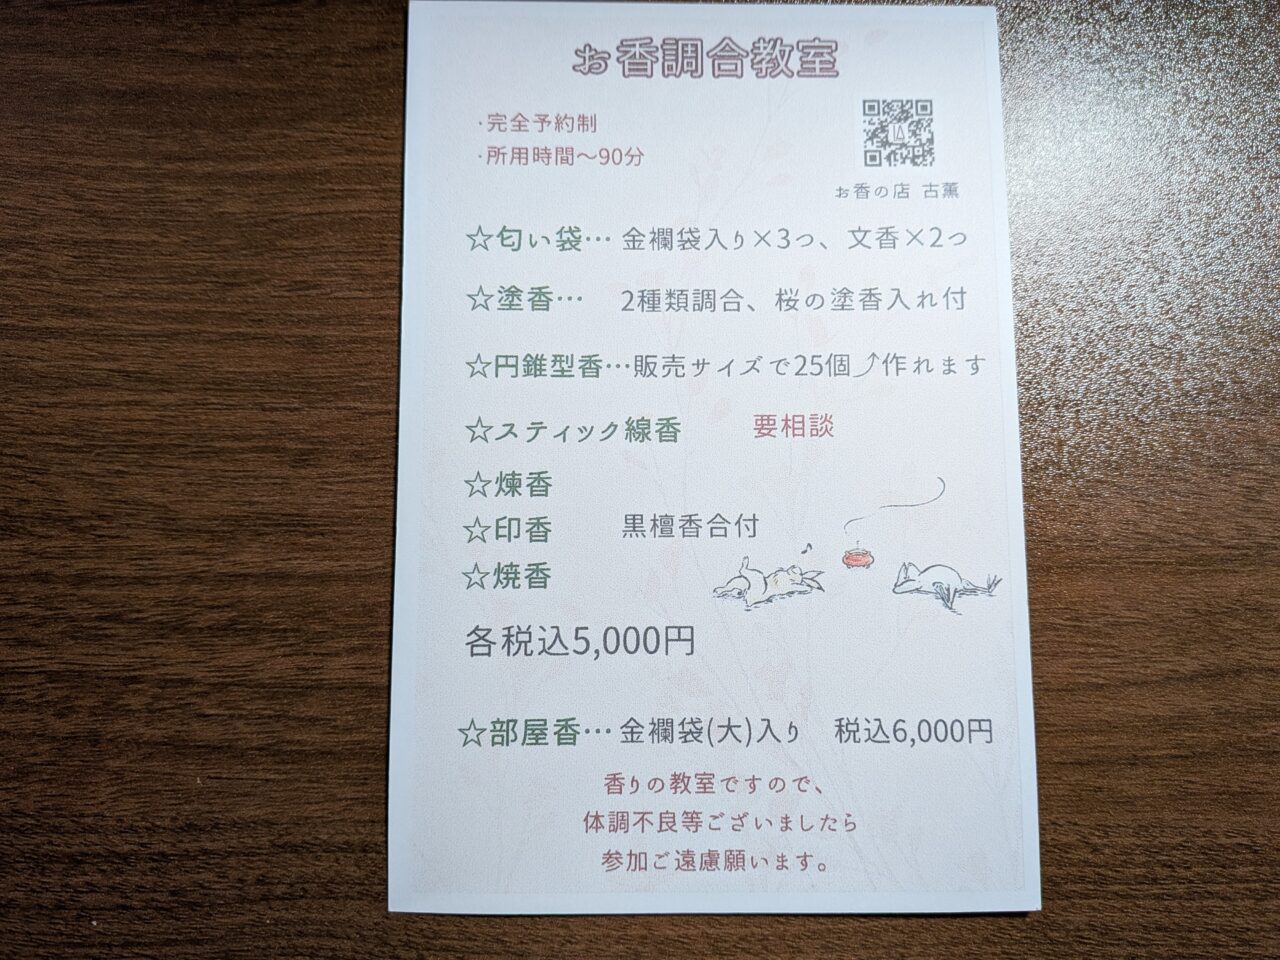 お香調合教室
・完全予約制
・所用時間～90分
お香の店 古薫
☆匂い袋… 金襴袋入り×3つ、文香×2つ
☆塗香… 2種類調合、桜の塗香入れ付
☆円錐型香…販売サイズで25個⤴作れます
☆スティック線香 要相談
☆煉香
☆印香 黒檀香合付
☆焼香
各税込5,000円
☆部屋香… 金襴袋(大)入り 税込6,000円
香りの教室ですので、
体調不良等ございましたら
参加ご遠慮願います。